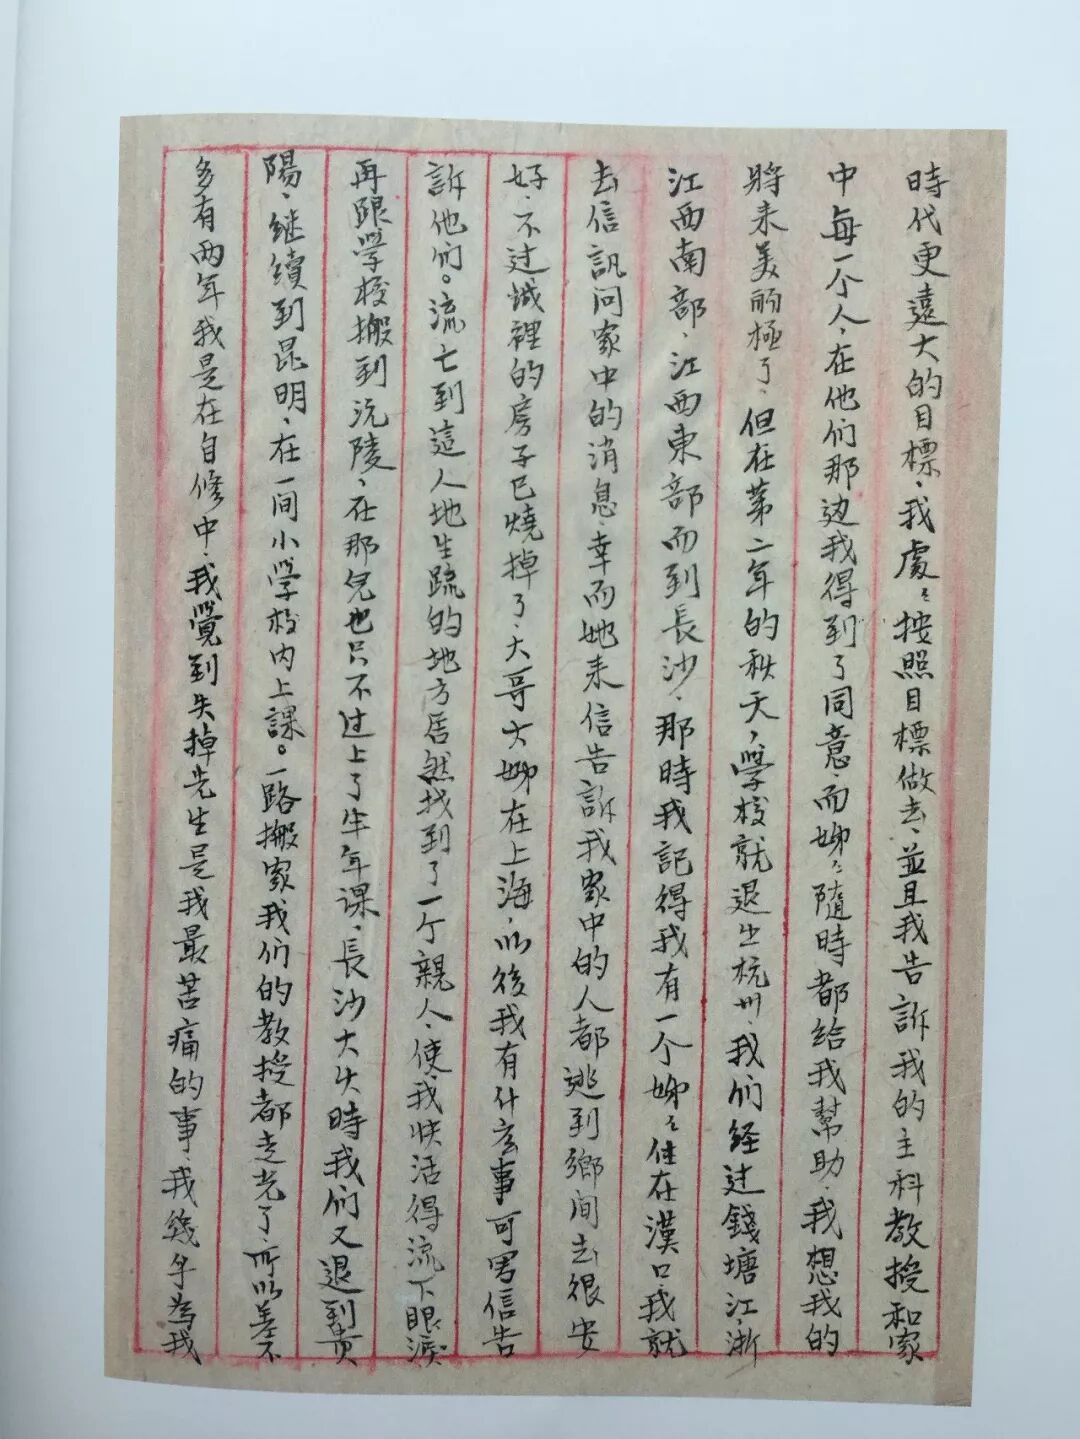 時代更遠大的目標、我處〻按照目標做去、並且我告訴我的主科教授和家
中每一个人、在他们那边我得到了同意、而姊〻隨時都给我幫助、我想我的
將来美丽極了、但在第二年的秋天，學校就退出杭州、我们经过錢塘江、浙
江西南部、江西東部而到長沙、那時我記得我有一个姊〻住在漢口、我就
去信訊问家中的消息、幸而她来信告訴我家中的人都逃到鄉间去很安
好、不过城裡的房子已燒掉了、大哥大姊在上海，以後我有什么事可写信告
訴他们。流亡到這人地生疏的地方居然找到了一个親人、使我快活得流下眼淚
再跟學校搬到沅陵、在那兒也只不过上了半年课、長沙大火時我们又退到贵
陽、继續到昆明、在一间小學校内上課。一路搬家我们的教授都走光了、所以差不
多有两年我是在自修中、我覺到失掉先生是我最苦痛的事、我幾乎為我